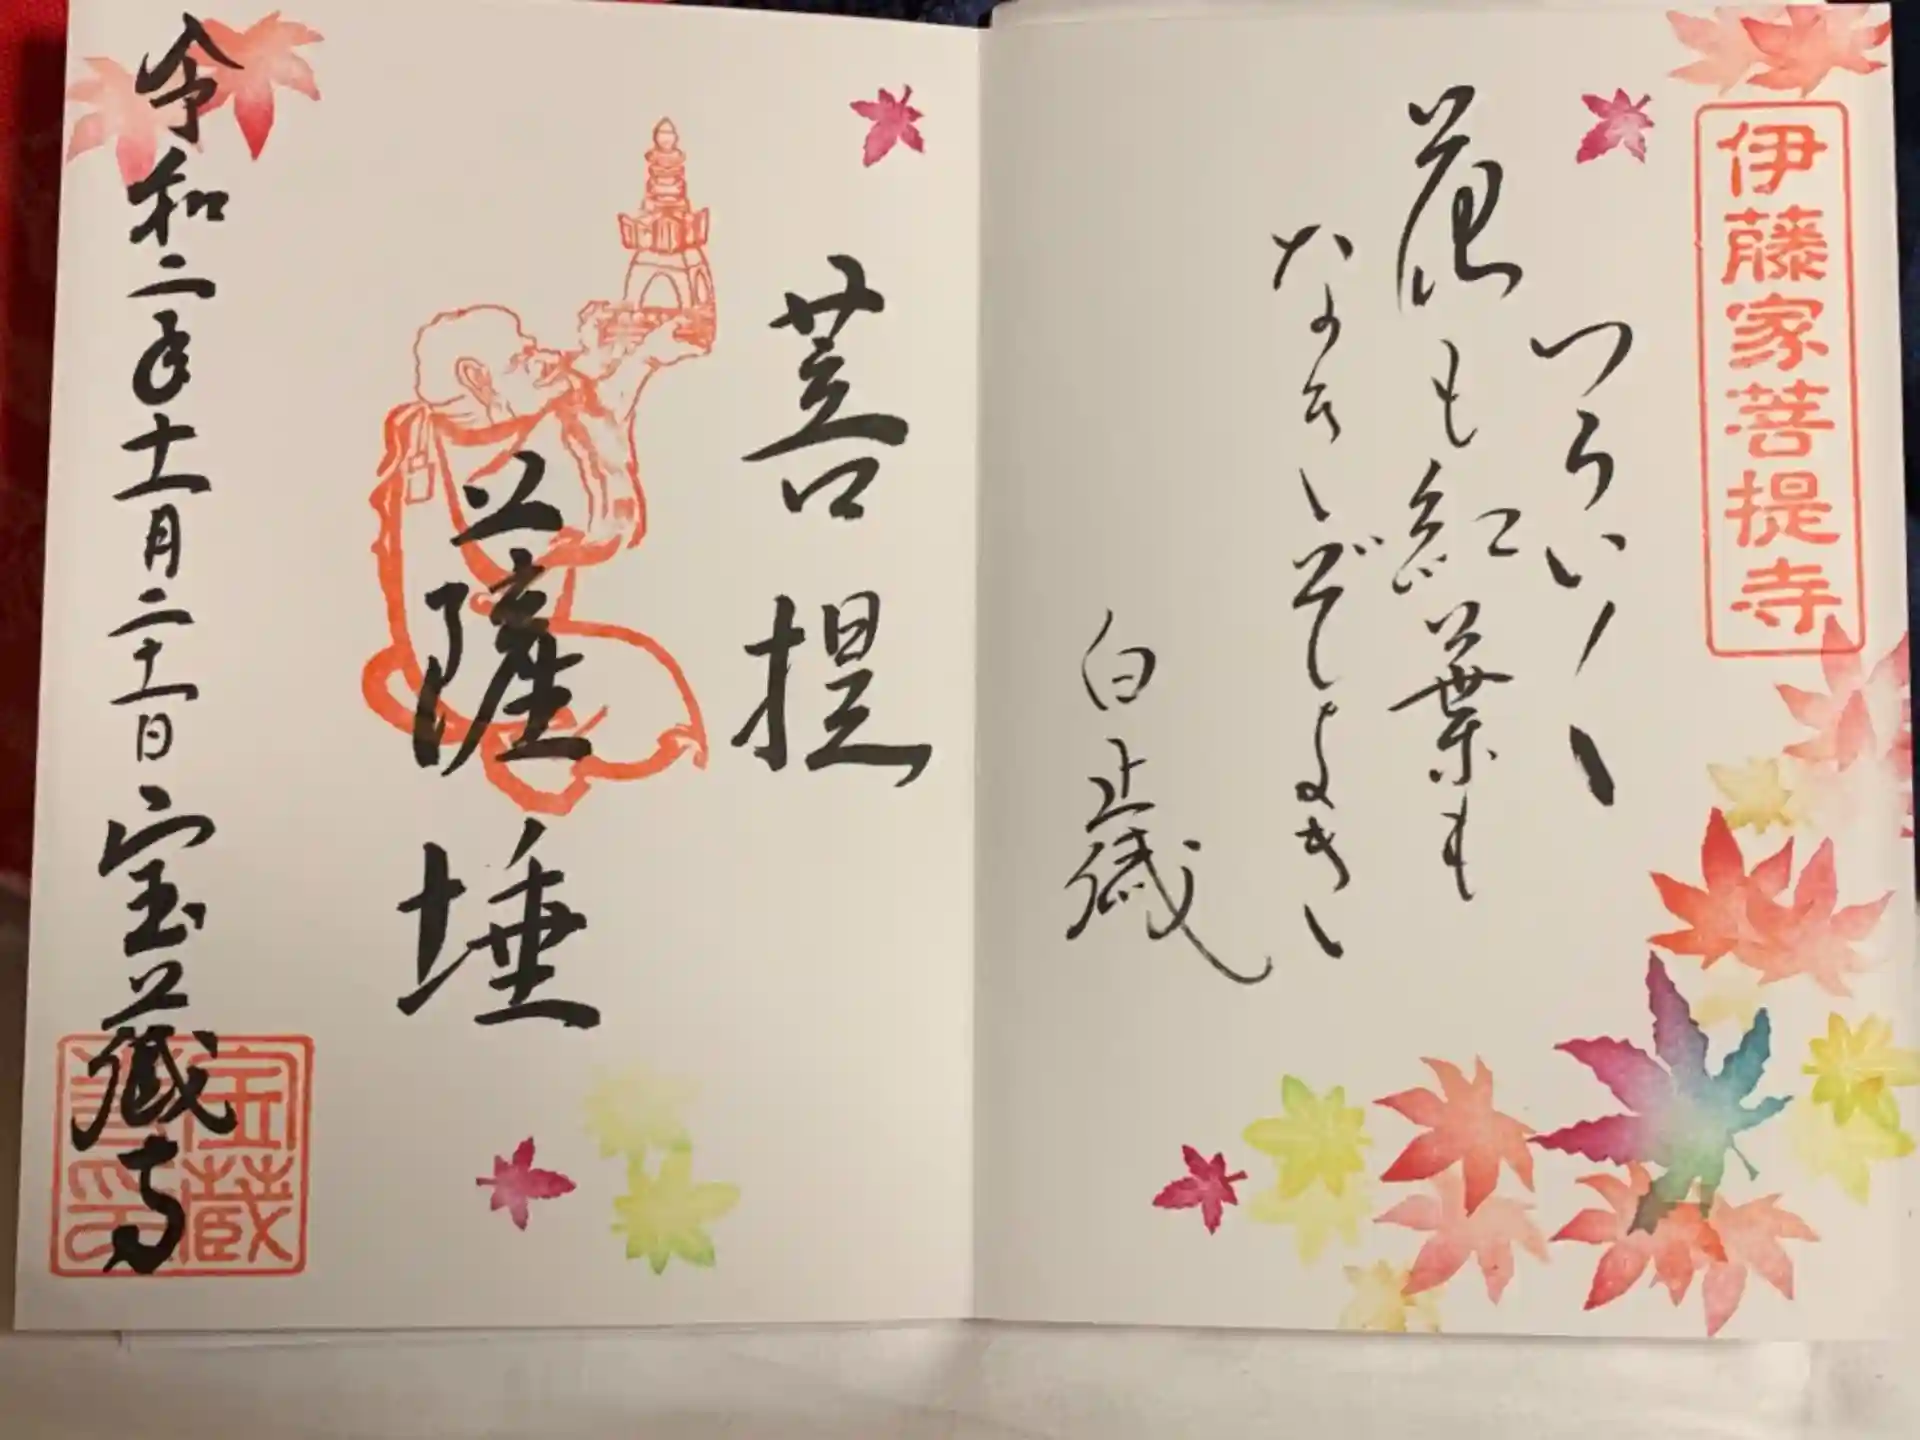 伊藤家菩提寺
花も紅葉も
ぞよき
白蔵
菩提
薩埵
令和二年十一月二十一日 宝蔵寺
宝蔵寺印